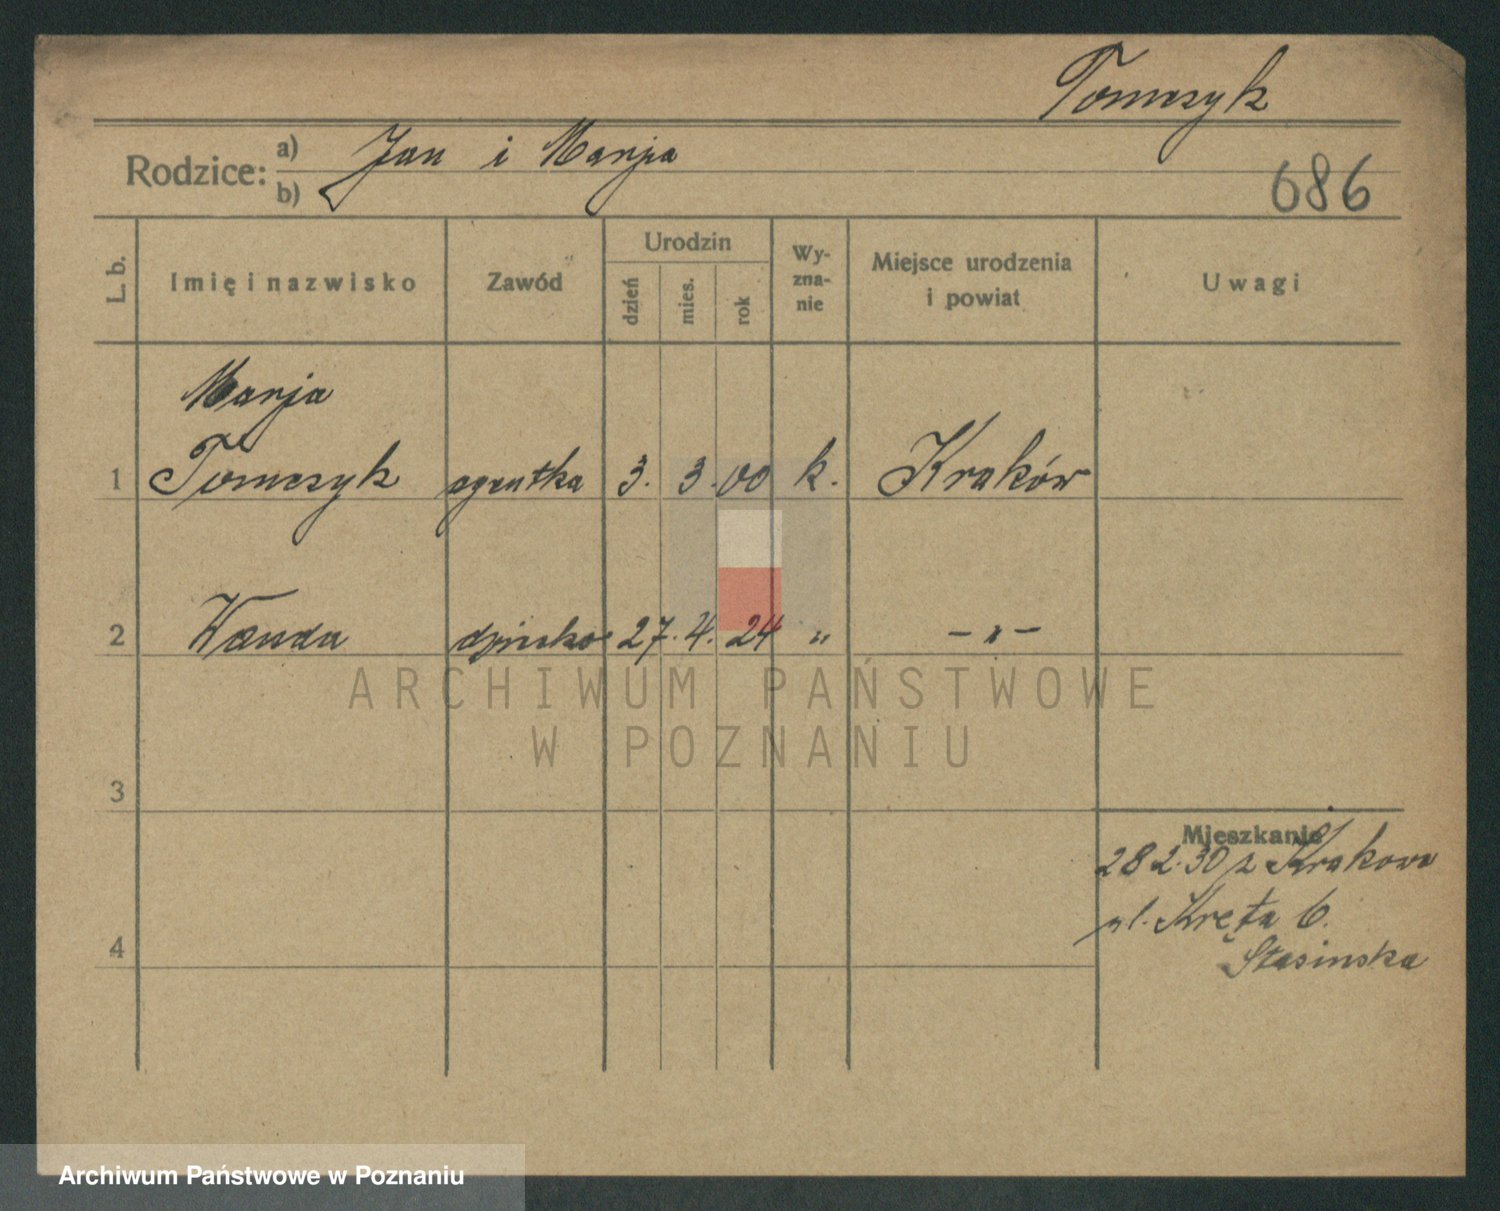 Tomczyk
Rodzice: a) Jan i Marja
b)
686
L. b.
Imię i nazwisko
Zawód
Urodzin
dzień
mies.
rok
Wy-
zna-
nie
Miejsce urodzenia
i powiat
Uwagi
Marja
1 Tomczyk agentka 3. 3. 00 k. Kraków
2 Wanda dziecko 27. 4. 24 " – " –
3
4
Mieszkanie
28 2. 30 z Krakowa
ul. Kręta 6.
Stasinska
ARCHIWUM PAŃSTWOWE
W POZNANIU
Archiwum Państwowe w Poznaniu